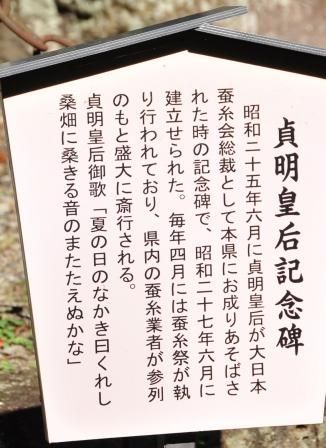 貞明皇后記念碑
昭和二十五年六月に貞明皇后が大日本
蚕糸会総裁として本県にお成りあそばさ
れた時の記念碑で、昭和二十七年六月に
建立せられた。毎年四月には蚕糸祭が執
り行われており、県内の蚕糸業者が参列
のもと盛大に斎行される。
貞明皇后御歌「夏の日のなかき曰くれし
桑畑に桑きる音のまたたえぬかな」